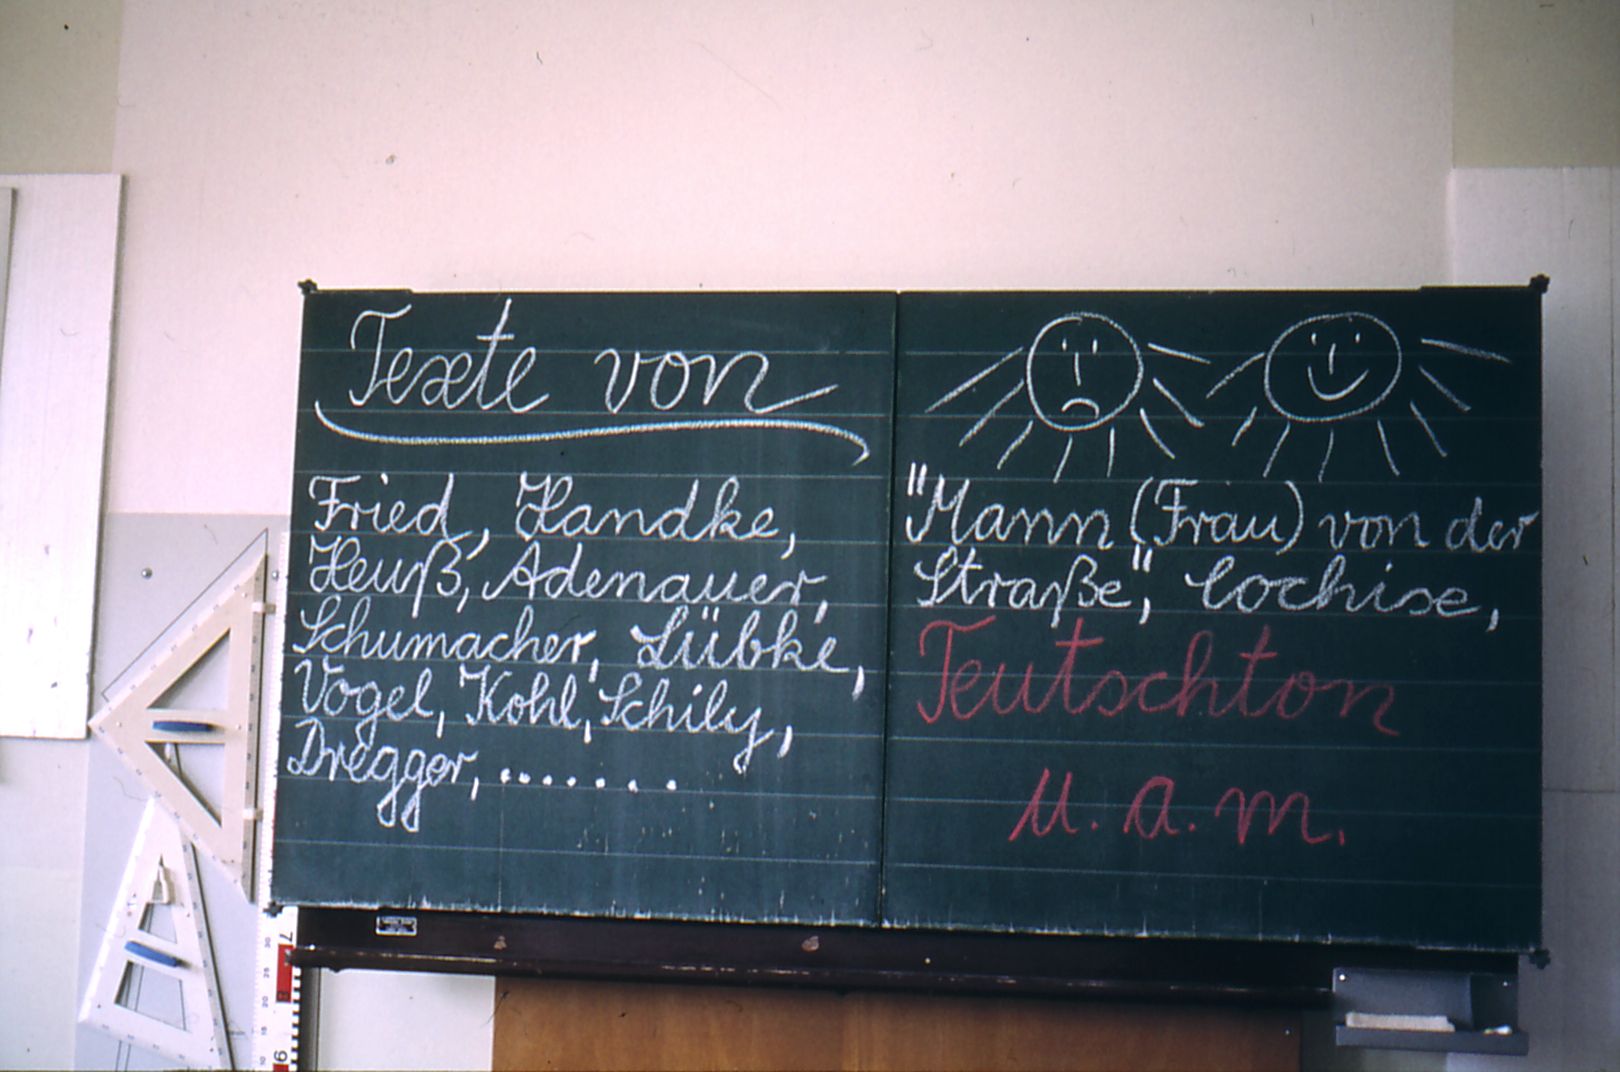 Texte von
Fried, Handke,
Heuß, Adenauer,
Schumacher, Lübke,
Vogel, Kohl, Schily,
Dregger, ........
"Mann (Frau) von der
Straße", Cochise,
Teutschton
u. a. m.
7
30
25
20
10
9